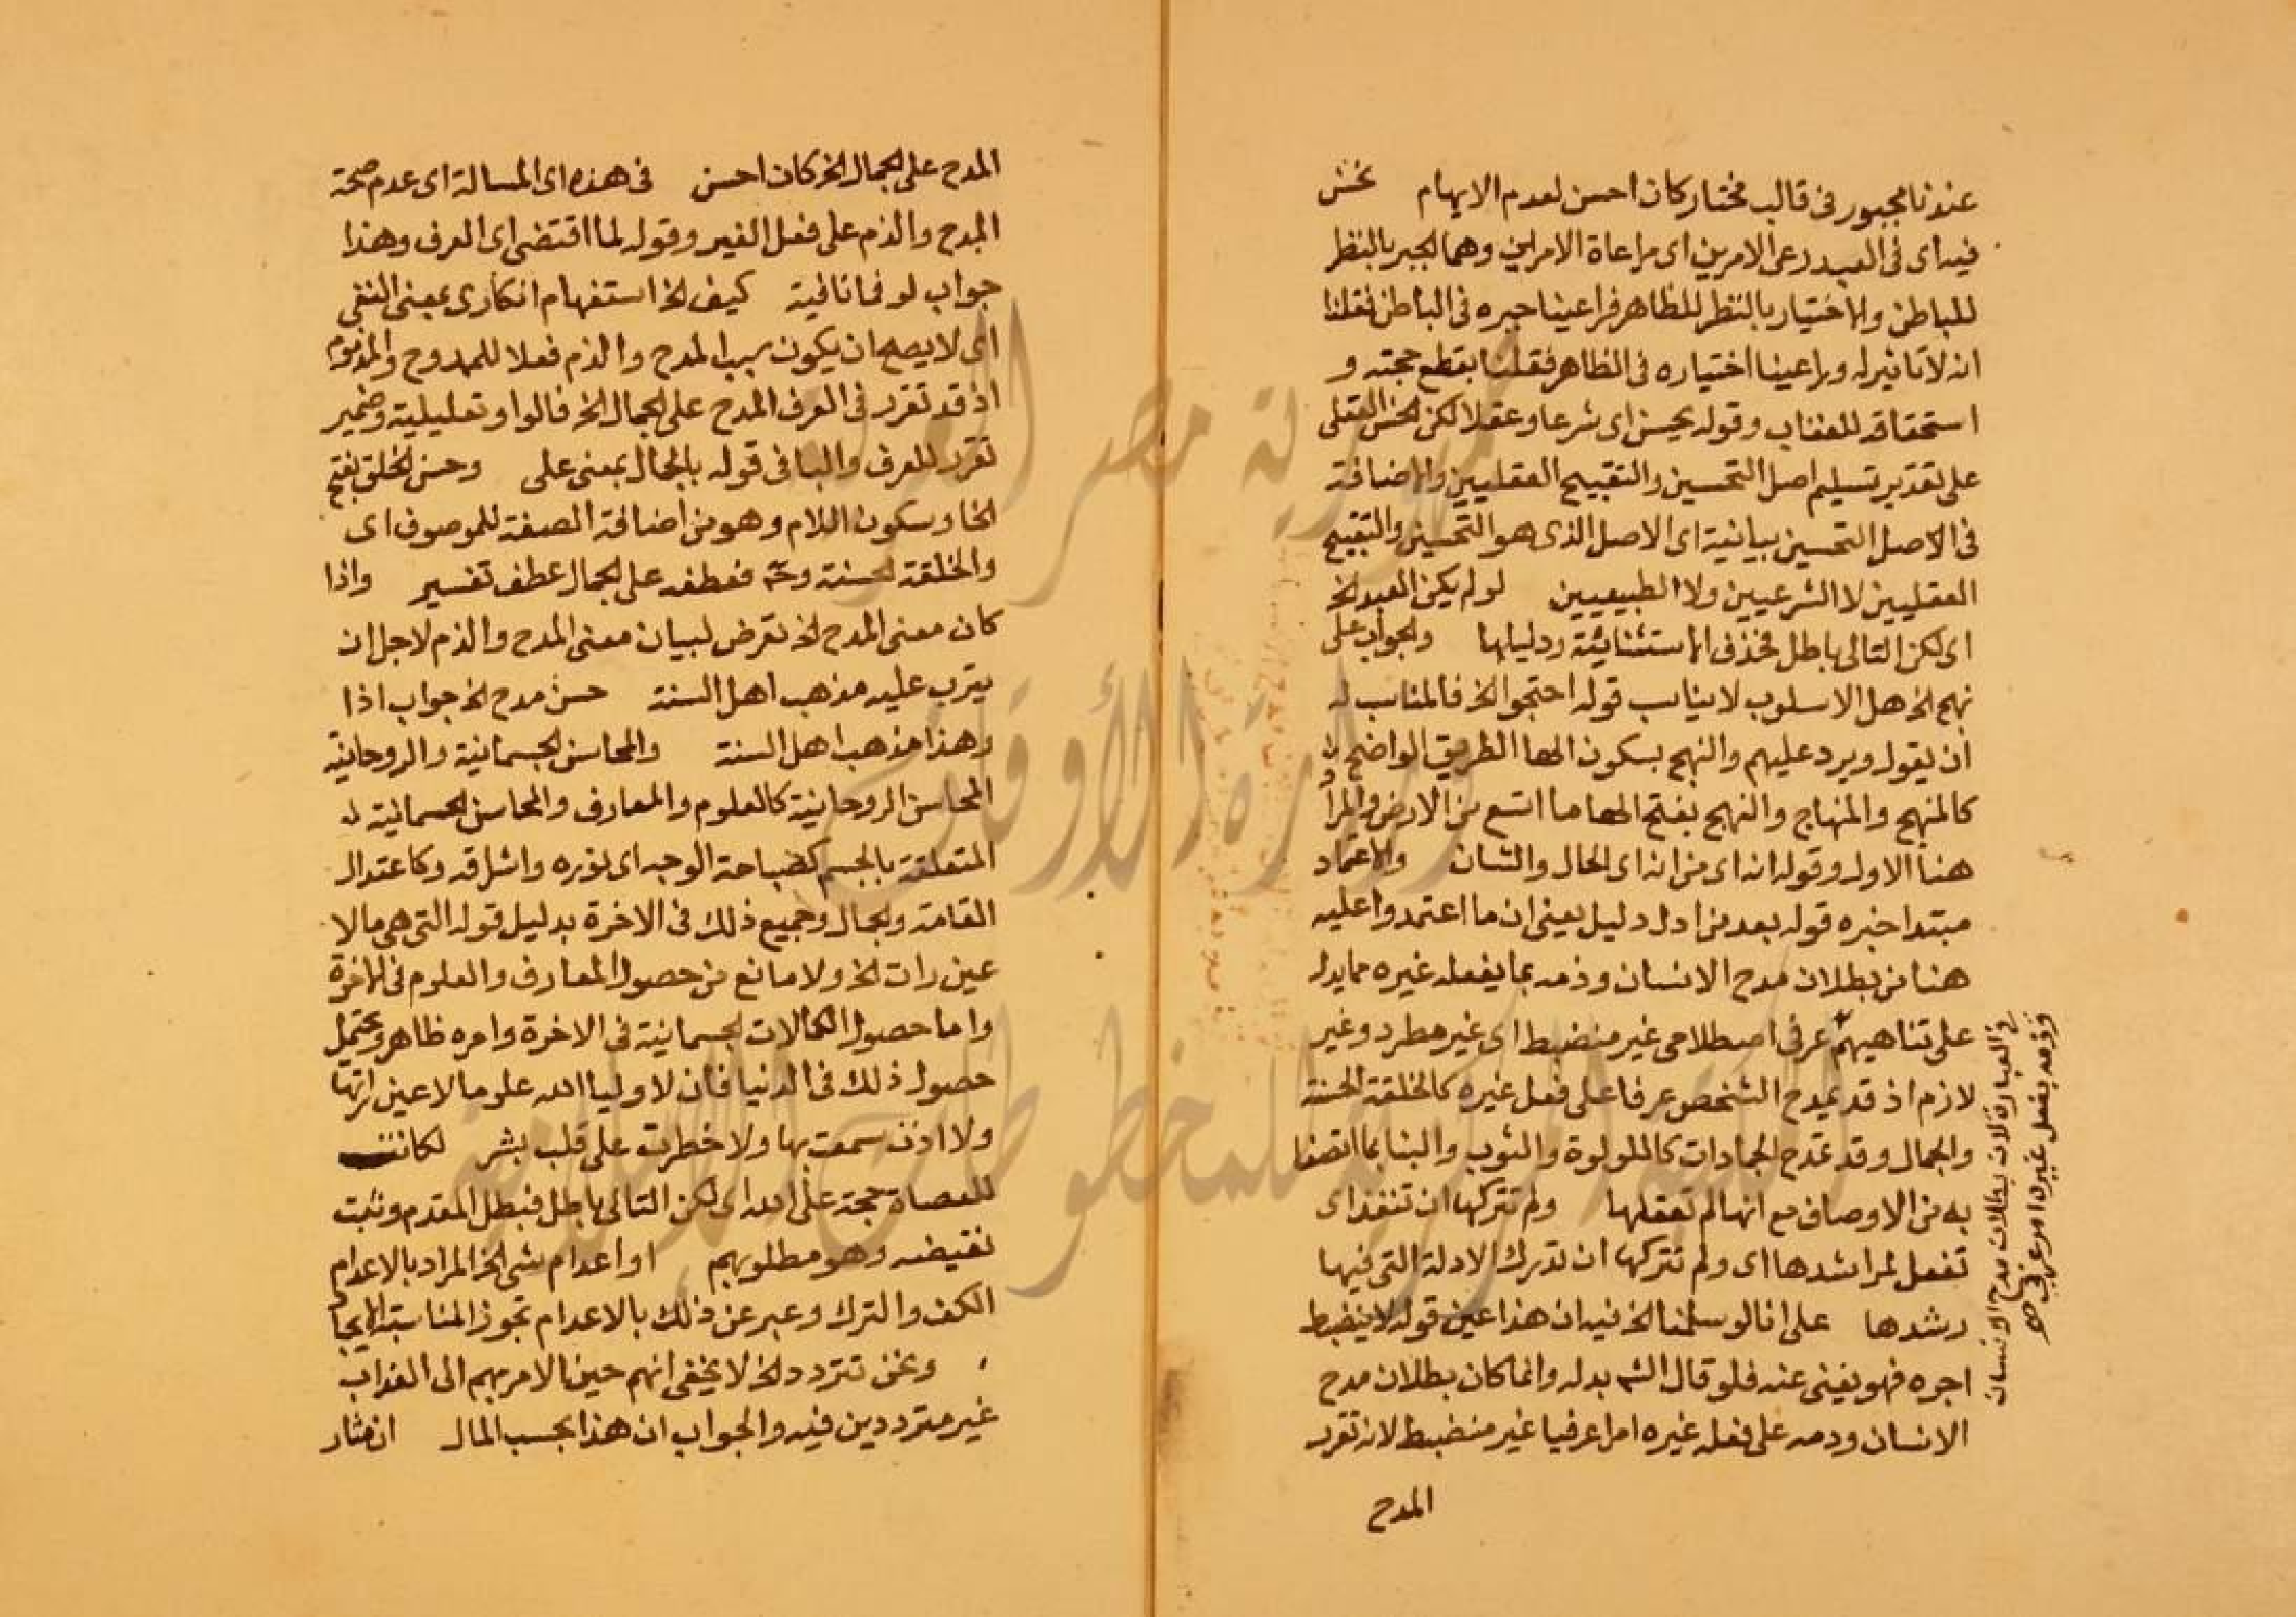 عندنا مجبور في قالب مختار كان احسن لعدم الايهام نحن
فيه اى في العبد رعى الامرين اى مراعاة الامرين وهما الجبر بالنظر
للباطن والاختيار بالنظر للظاهر فراعينا جبره في الباطن فقلنا
انه لا تاثير له وراعينا اختياره في الظاهر فقلنا بقطع حجته و
استحقاقه للعقاب وقوله يحسن اى شرعا وعقلا لكن الحسن العقلى
على تقدير تسليم اصل التحسين والتقبيح العقليين والاضافة
في الاصل التحسين بيانية اى الاصل الذى هو التحسين والتقبيح
العقليين لا الشرعيين ولا الطبيعيين لو لم يكن العبد الخ
اى لكن التالى باطل فحذف الاستثنائية ودليلها والجواب على
نهج الخ هل الاسلوب لا يناسب قوله احتجوا الخ فالمناسب له
ان يقول ويرد عليهم والنهج بسكون الها الطريق الواضح
كالمنهج والمنهاج والنهج بفتح الها ما اتسع من الارض والمراد
هنا الاول وقوله انه اى من انه اى الحال والشان والاعتماد
مبتدا خبره قوله بعد من ادل دليل يعنى ان ما اعتمدوا عليه
هنا من بطلان مدح الانسان وذمه بما يفعله غيره مما يدل
على تناهيهم عرفى اصطلاحى غير منضبط اى غير مطرد وغير
لازم اذ قد يمدح الشخص عرفا على فعل غيره كالخلقة الحسنة
والجمال وقد تمدح الجمادات كاللولوة والثوب والبنا بما اتصفا
به من الاوصاف مع انها لم تعقلها ولم تتركها ان تنفذ اى
تفعل لمراشدها اى ولم تتركها ان تدرك الادلة التى فيها
رشدها على انا لو سلمنا الخ فيه ان هذا عين قوله لا ينضبط
اجره فهو يغنى عنه فلو قال الشه بدله وانما كان بطلان مدح
الانسان وذمه على فعله غيره امرا عرفيا غير منضبط لانه تقرر
المدح
في العبارة لان بطلان مدح الانسان
وذمه بفعل غيره امر عرفى صح
المدح على الجمال الخ كان احسن في هذه اى المسالة اى عدم صحة
المدح والذم على فعل الغير وقوله لما اقتضى اى العرف وهذا
جواب لو فما نافية كيف الخ استفهام انكارى بمعنى النفى
اى لا يصح ان يكون سبب المدح والذم فعلا للممدوح والمذموم
اذ قد تقرر في العرف المدح على الجمال الخ فالواو تعليلية وضمير
تقرر للعرف والبا في قوله بالجمال بمعنى على وحسن الخلق بفتح
الخا وسكون اللام وهو من اضافة الصفة للموصوف اى
والخلقة الحسنة وح فعطفه على الجمال عطف تفسير واذا
كان معنى المدح الخ تعرض لبيان معنى المدح والذم لاجل ان
يترب عليه مذهب اهل السنة حسن مدح الخ جواب اذا
وهذا مذهب اهل السنة والمحاسن الجسمانية والروحانية
المحاسن الروحانية كالعلوم والمعارف والمحاسن الجسمانية
المتعلقة بالجسم كصباحة الوجه اى نوره واشراقه وكاعتدال
القامة والجمال وجميع ذلك في الاخرة بدليل قوله التى هى مالا
عين رات الخ ولا مانع من حصول المعارف والعلوم في الاخرة
واما حصول الكمالات الجسمانية في الاخرة وامره ظاهر ويحتمل
حصول ذلك في الدنيا فان لاوليا الله علوما لا عين راتها
ولا اذن سمعت بها ولا خطرت على قلب بشر لكانت
للعصاة حجة على الله اى لكن التالى باطل فبطل المقدم وثبت
نقيضه وهو مطلوبهم او اعدام شى الخ المراد بالاعدام
الكف والترك وعبر عن ذلك بالاعدام تجوزا لمناسبة الايجاد
ونحن نتردد الخ لا يخفى انهم حين الامر بهم الى العذاب
غير مترددين فيه والجواب ان هذا بحسب المال ان مثار